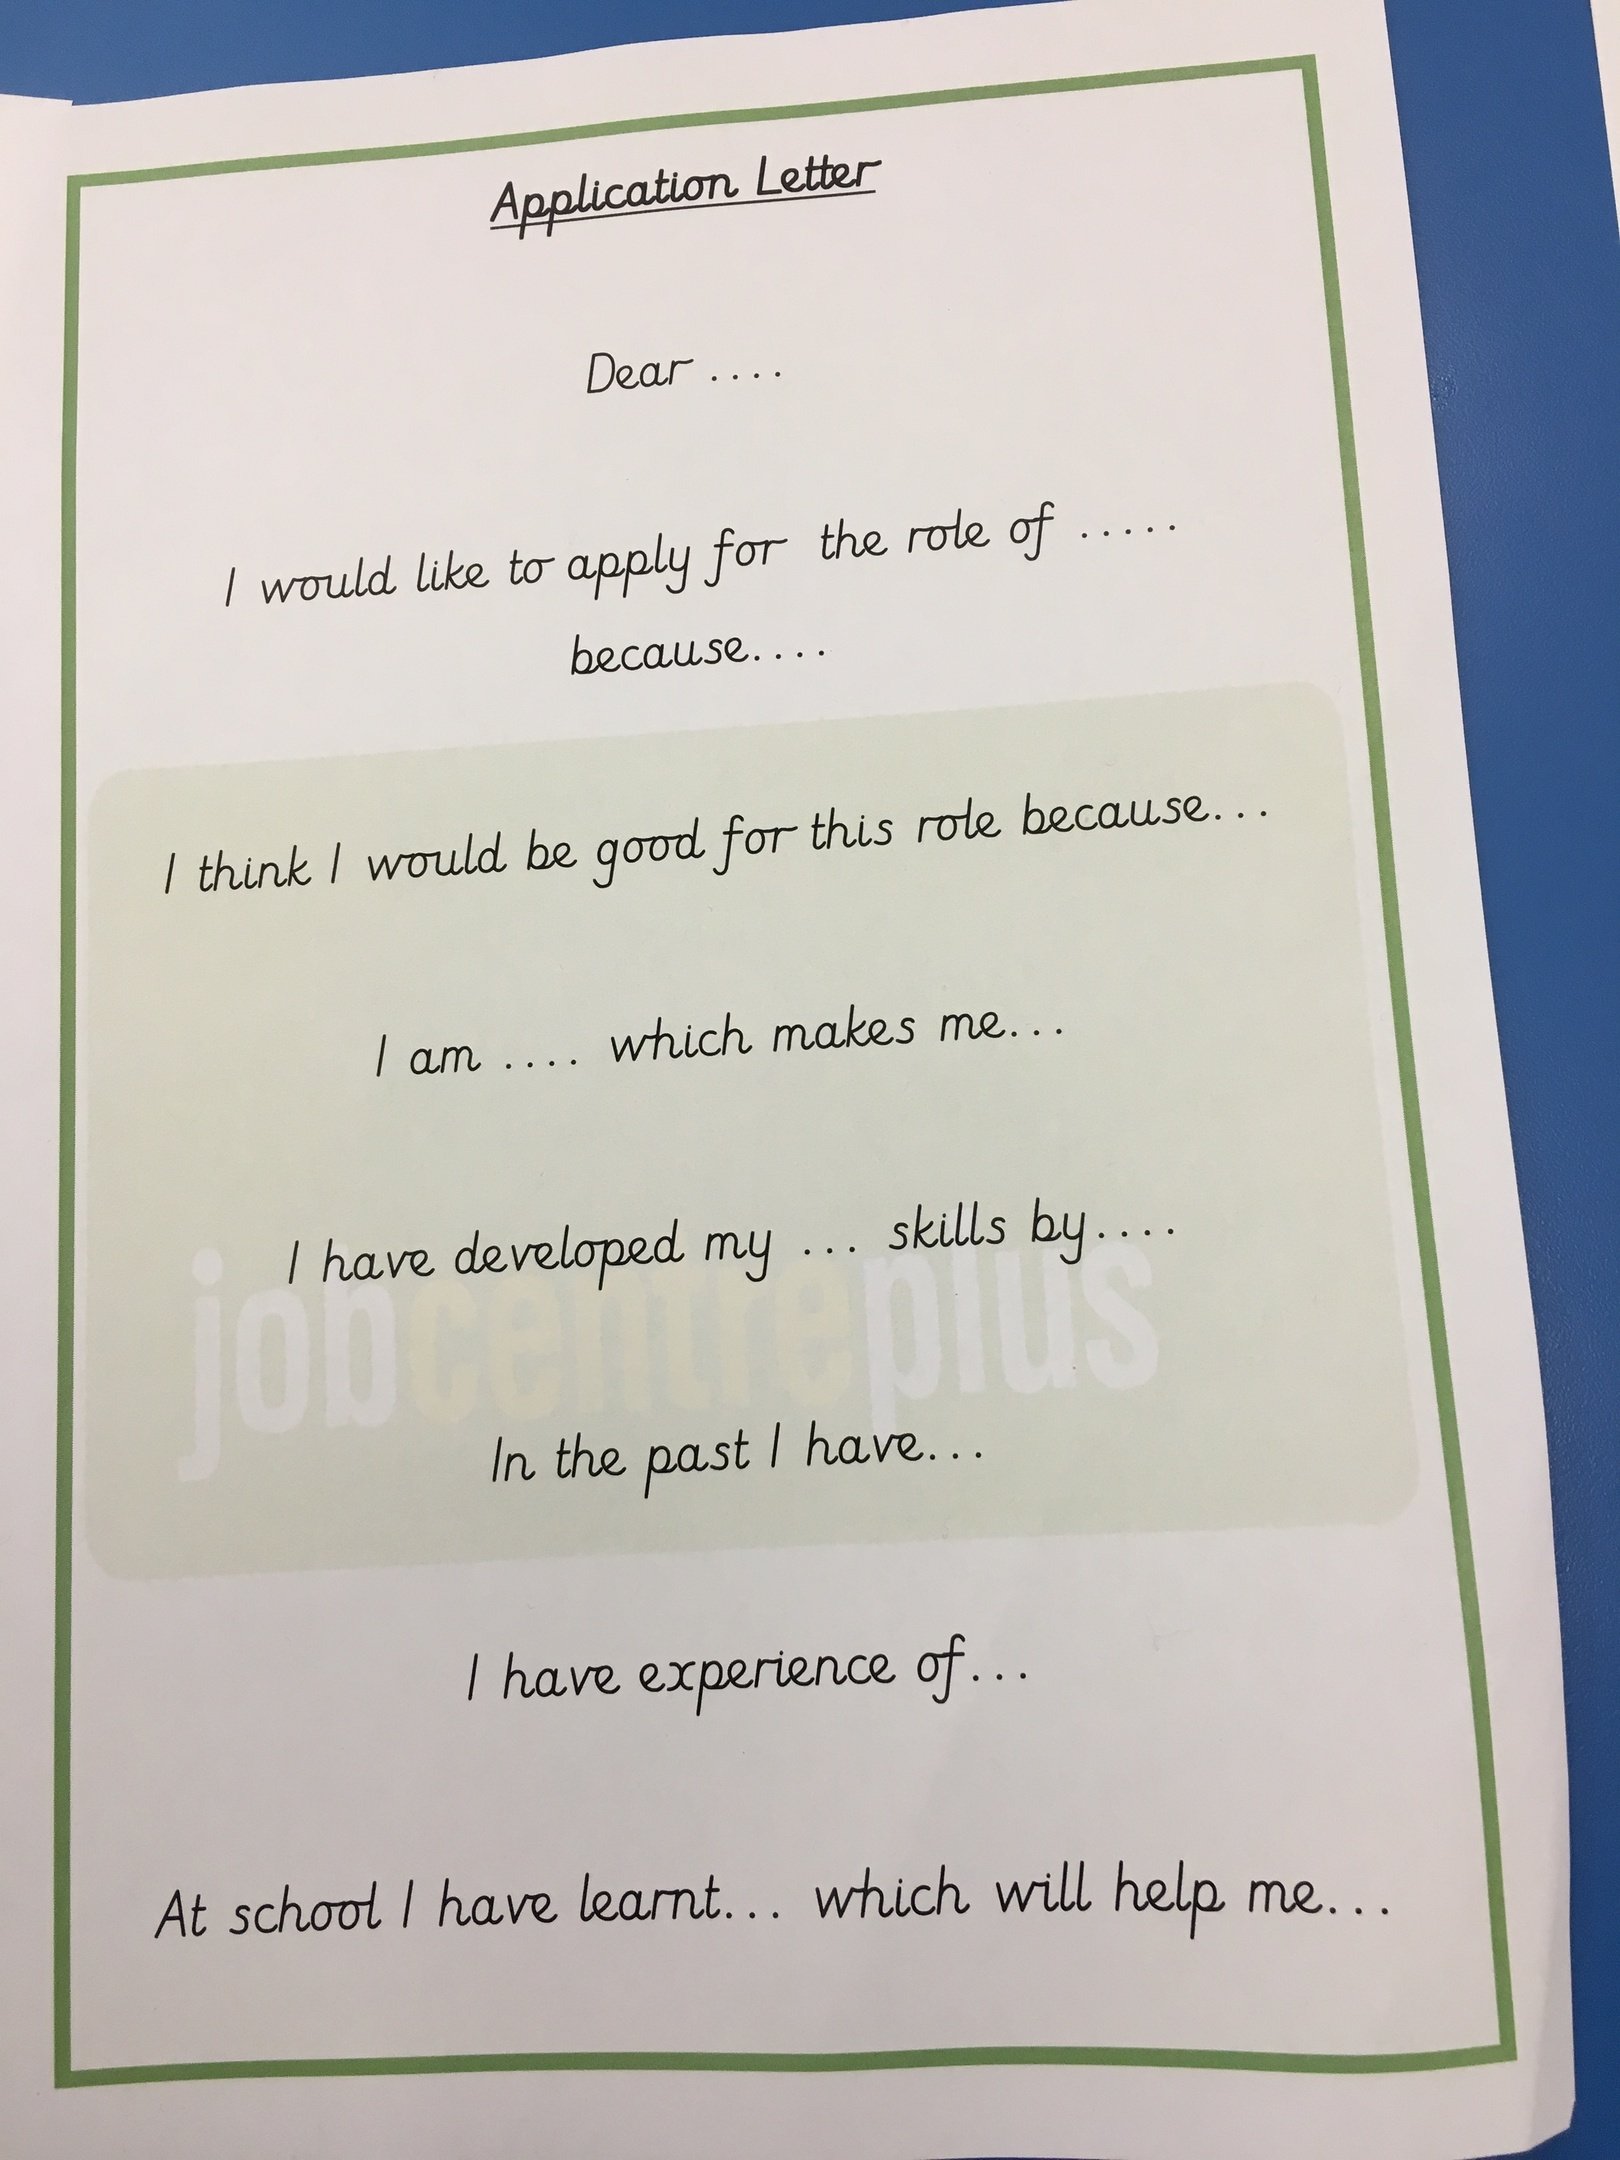 Application Letter
Dear ....
I would like to apply for the role of .....
because....
I think I would be good for this role because...
I am .... which makes me...
I have developed my ... skills by....
jobcentreplus
In the past I have...
I have experience of...
At school I have learnt... which will help me...